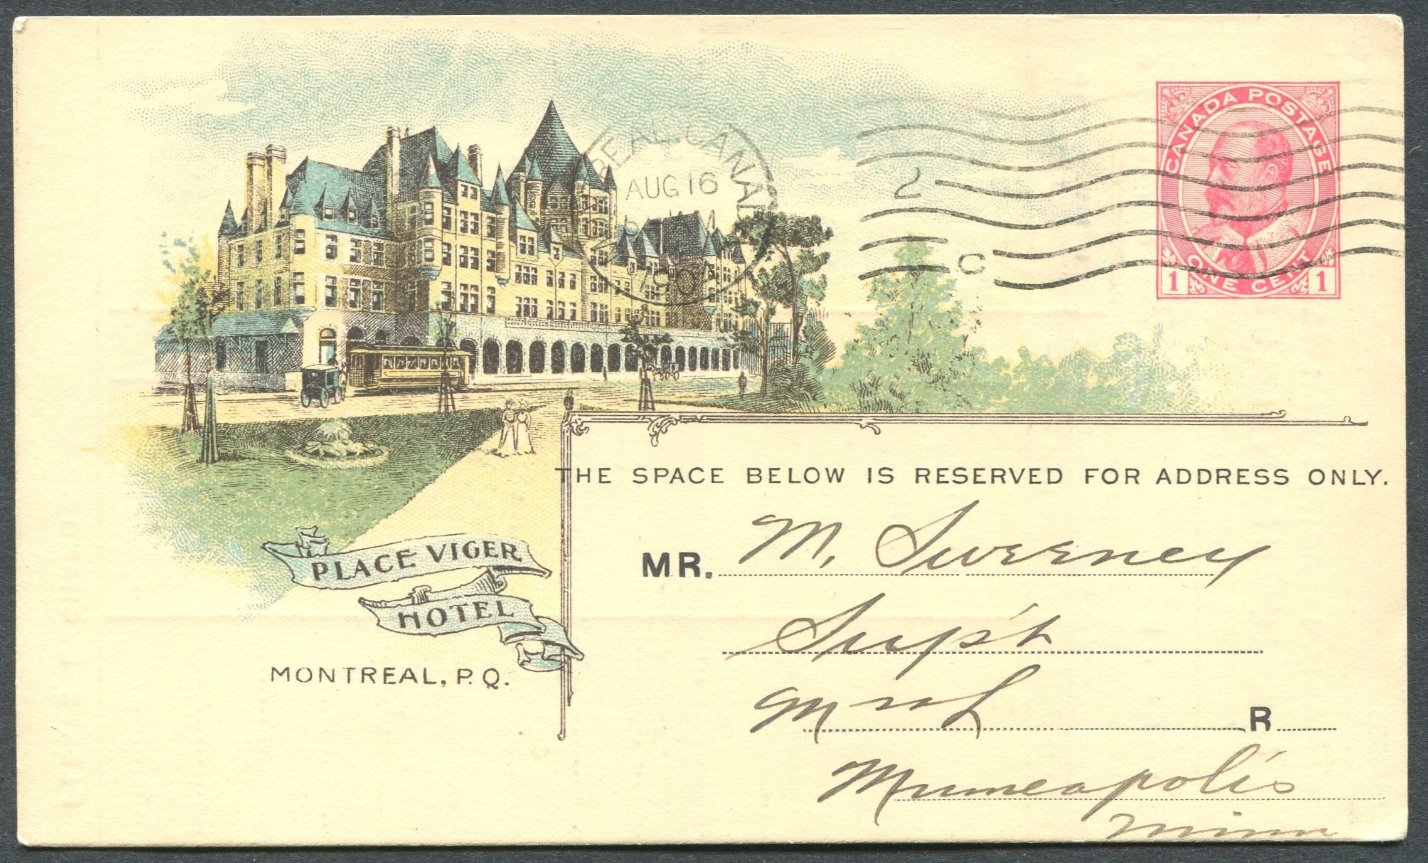 CANADA POSTAGE
ONE CENT
1 1
REAL, CANADA
AUG 16
190
2
C
THE SPACE BELOW IS RESERVED FOR ADDRESS ONLY.
MR. M. Sweeney
Sup't
R
Minneapolis
Minn
PLACE VIGER
HOTEL
MONTREAL, P.Q.